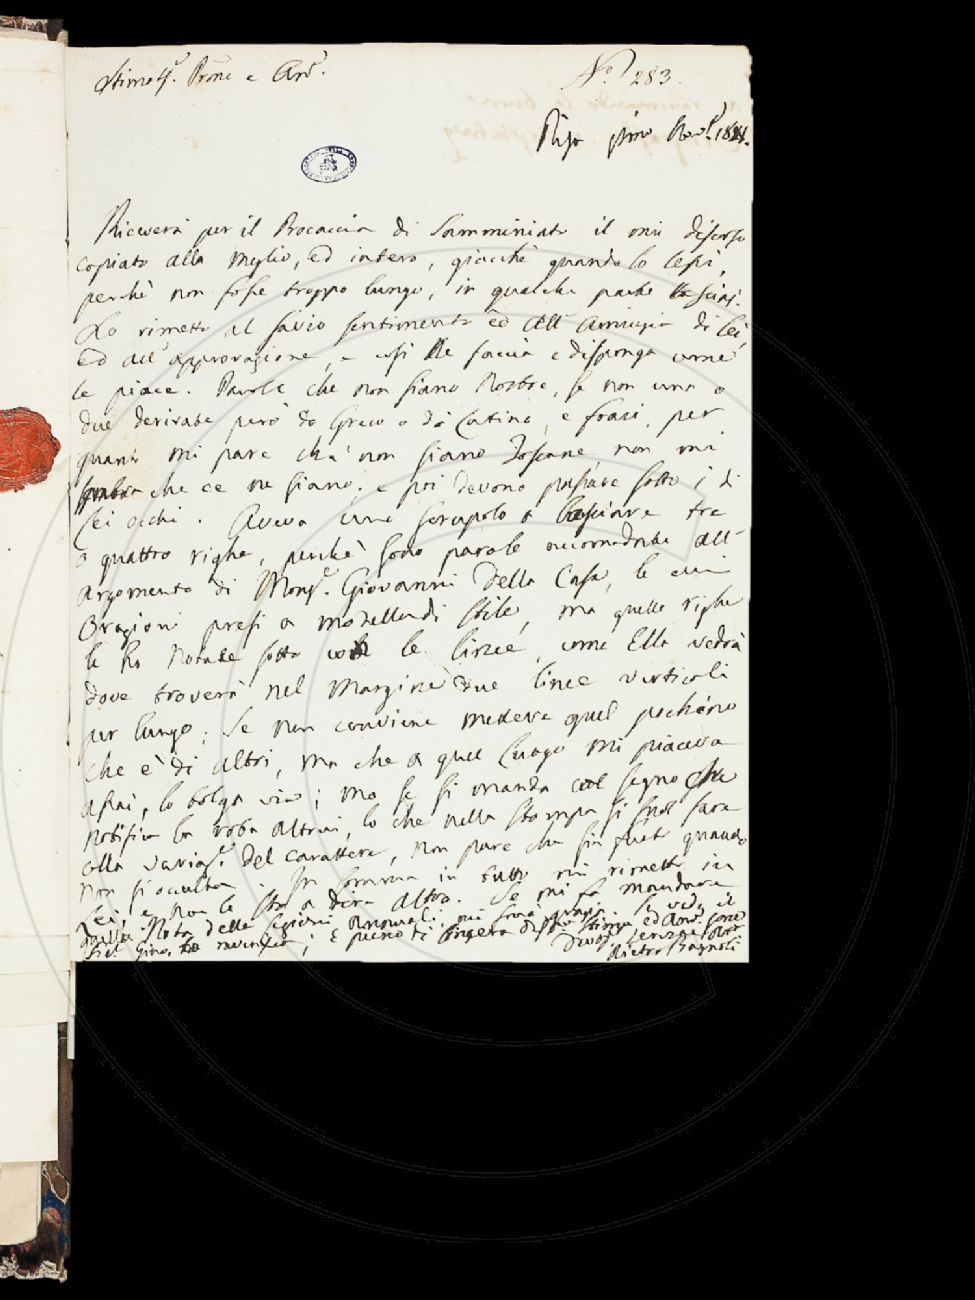 Stimatṣ.ͬ Prone e Am.ͨ
N.º 283.
Pisa primo Nov.ͤ 1824.
Riceverà per il Procaccia di Samminiato il mio discorso
copiato alla meglio, ed intero, giacchè quando lo lessi,
perchè non fosse troppo lungo, in qualche parte lo sciai.
Lo rimetto al savio sentimento ed all' amicizia di lei,
ed all' approvazione, e così ne faccia e disponga come
le piace. Parole che non siano Nostre, se non una o
due derivate però da Greco o da Latino, e frasi, per
quanto mi pare che non siano Toscane non mi
sembra che ce ne siano; e poi devono passare sotto i di
Lei occhi. Aveva come scrupolo a lasciare tre
o quattro righe, perchè sono parole accomodate all'
argomento di Mons.ͬ Giovanni Della Casa, le cui
Orazioni presi a modello di stile, ma quelle righe
le ho notate sotto con le linee, come Ella vedrà
dove troverà nel margine due linee verticali
per lungo; Se non conviene mettere quel pochino
che è di altri, ma che a quel luogo mi piaceva
assai, lo tolga via; ma se si manda col segno che
notifica la roba altrui, lo che nella stampa si suol fare
colla variaz.ͤ del carattere, non pare che sia furto quando
non si occulta. In somma in tutto mi rimetto in
Lei, e non le sto a dire altro. Se mi fa mandare
quella Nota delle Lezioni mi farà grazia. Se vede il
Sig.ͬ Gino, lo riverisca; e pieno di sincera stima ed am.
Pietro Bagnoli